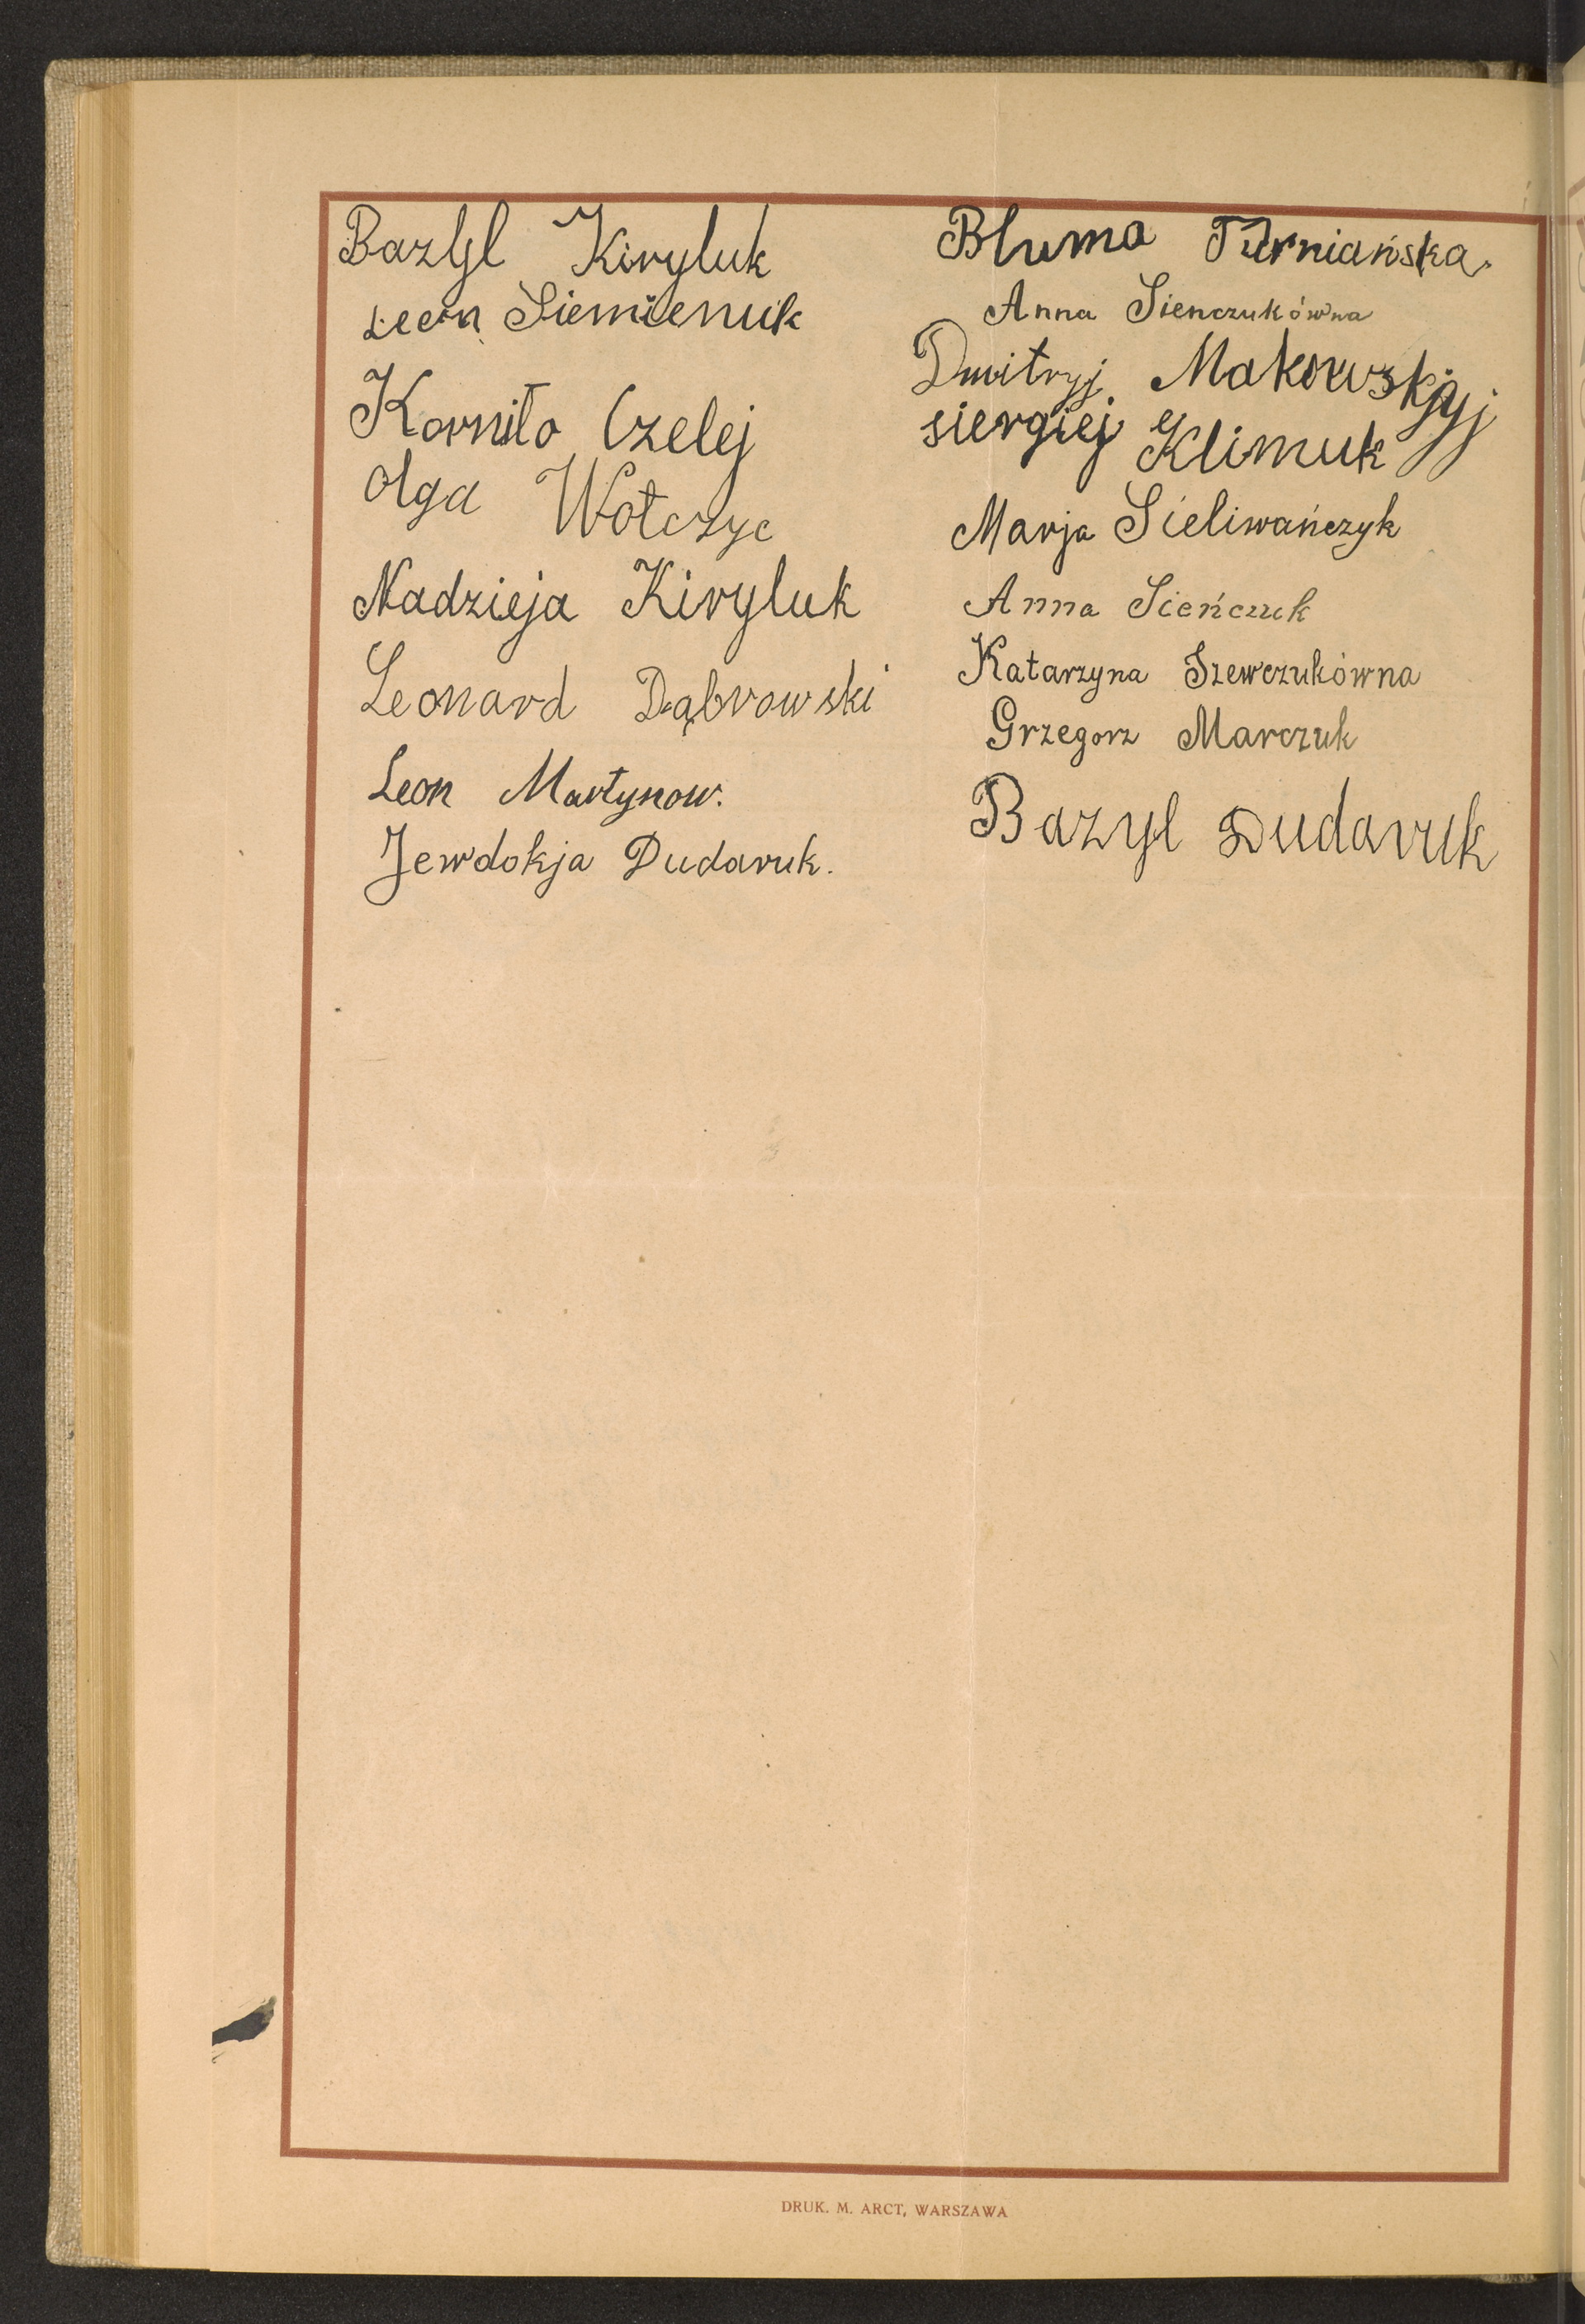 Bazyl Kiryluk
Leon Siemieniuk
Korniło Czelej
Olga Wołczyc
Nadzieja Kiryluk
Leonard Dąbrowski
Leon Martynow.
Jewdokja Dudaruk.
Bluma Turniańska.
Anna Sienczukówna
Dmitryj Makowskjyj
siergiej Klimuk
Marja Sieliwańczyk
Anna Sieńczuk
Katarzyna Szewczukówna
Grzegorz Marczuk
Bazyl Dudaruk
DRUK. M. ARCT, WARSZAWA